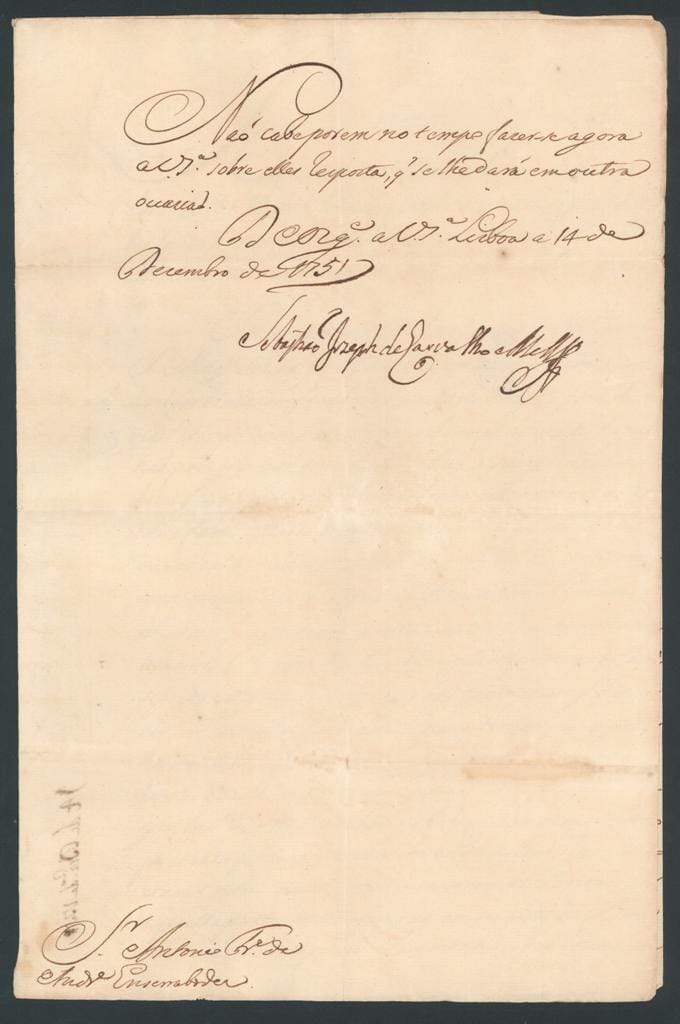 Naó cabe porem no tempo fazer-se agora
a V.S.ª sobre elles resposta, q̃ se lhe dará em outra
occasiaó.
D.s g.e a V.S.ª Lisboa a 14 de
Dezembro de 1751
Sebastiaó Joseph de Carvalho e Mello
S.r Antonio Fr.e de
Andr.e Enserrabodes